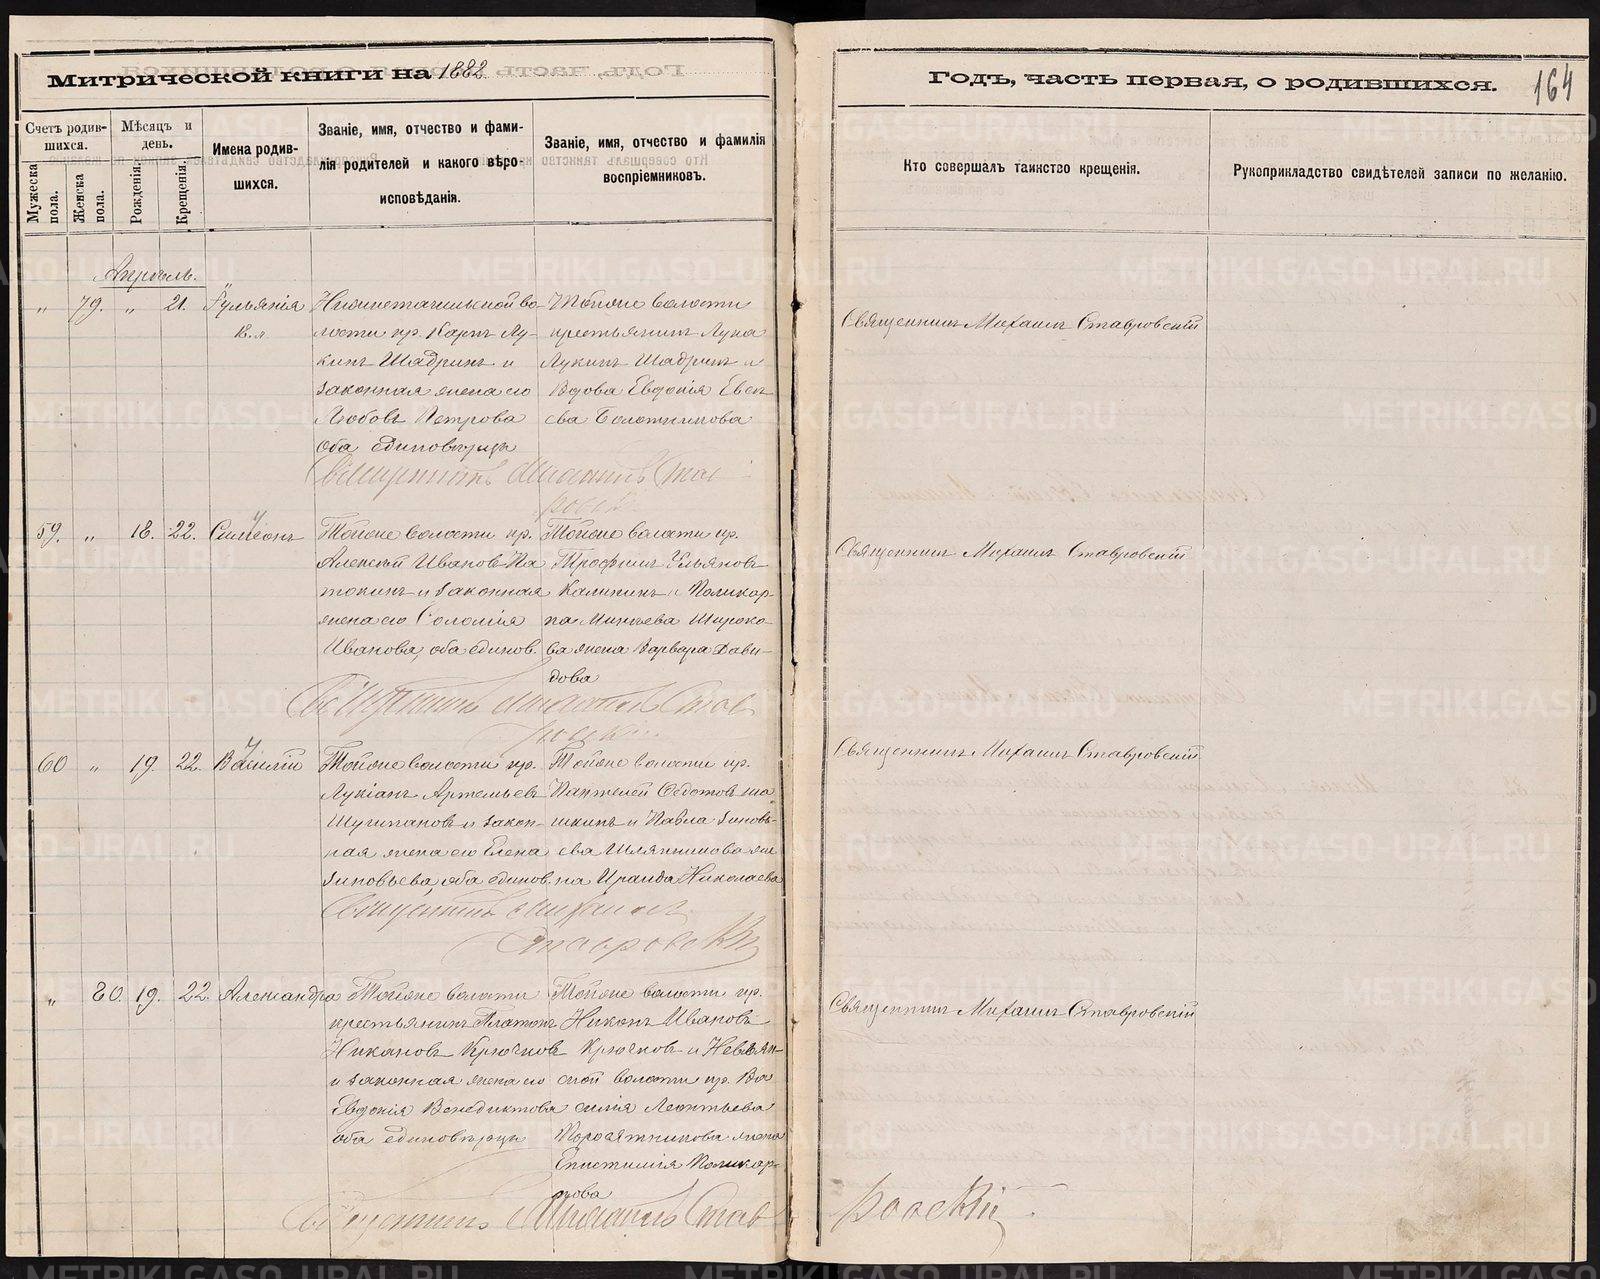 Митрической книги на 1882
Годъ, часть первая, о родившихся.
164
Счетъ родив-
шихся.
Мѣсяцъ и
день.
Мужеска
пола.
Женска
пола.
Рожденія.
Крещенія.
Имена родив-
шихся.
Званіе, имя, отчество и фами-
лія родителей и какого вѣро-
исповѣданія.
Званіе, имя, отчество и фамилія
воспріемниковъ.
Кто совершалъ таинство крещенія.
Рукоприкладство свидѣтелей записи по желанію.
Апрѣль.
„ 79. „ 21. Іульянія
Нижнетагильской во-
лости кр. Карпъ Лу-
кинъ Шадринъ и
законная жена его
Любовь Петрова
оба единовѣрцы
Тойже волости
крестьянинъ Лука
Лукинъ Шадринъ и
Вдова Евдокія Евсѣ-
ева Болотникова
Священникъ Михаилъ Ставровскій
Священникъ Михаилъ Став-
ровскій
59. „ 18. 22. Симеонъ
Тойже волости кр.
Алексѣй Ивановъ Па
токинъ и законная
жена его Соломія
Иванова, оба единов.
Тойже волости кр.
Трофимъ Ульяновъ
Калининъ и Поликар-
па Широко-
ва жена Варвара Дави-
дова
Священникъ Михаилъ Ставровскій
Священникъ Михаилъ Став
ровскій
60 „ 19. 22. Василій
Тойже волости кр.
Лукіанъ Артемьевъ
и закон-
ная жена его Елена
Зиновьева, оба единов.
Тойже волости кр.
Пантелей Федотовъ
и Павла Зиновь-
ева Шляпникова же
на Ираида Николаева
Священникъ Михаилъ Ставровскій
Священникъ Михаилъ
Ставровскій
„ 80. 19. 22. Александра
Тойже волости
крестьянинъ Платонъ
Никоновъ Крючковъ
и законная жена его
Евдокія Венедиктова
оба единовѣрцы
Тойже волости кр.
Никонъ Ивановъ
Крючковъ и Невьян-
ской волости кр. Ва
силія Леонтьева
Поросятникова жена
Епистимія Поликар-
пова
Священникъ Михаилъ Ставровскій
Священникъ Михаилъ Став
ровскій
METRIKI.GASO-URAL.RU